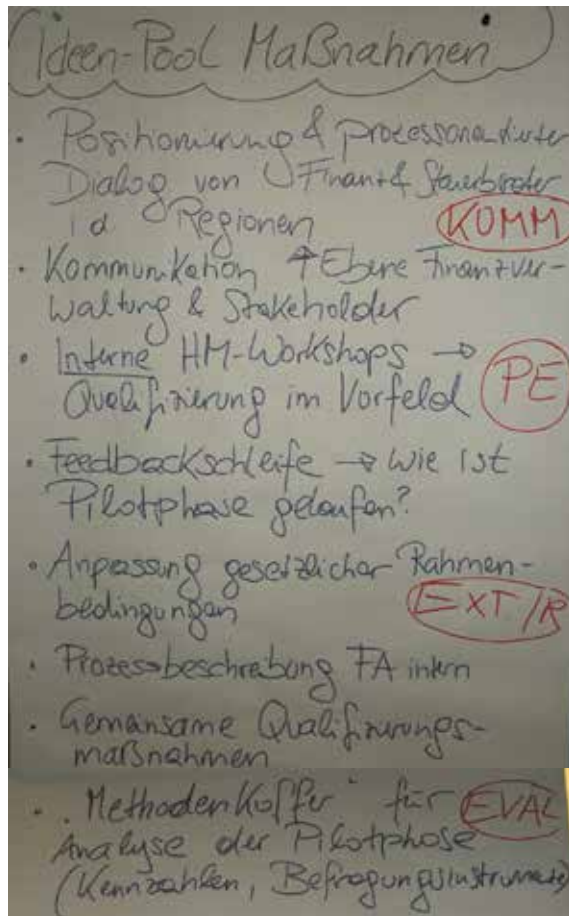 Ideen-Pool Maßnahmen
• Positionierung & prozessorientierter
Dialog von Finanz & Steuerberater
i d Regionen KOMM
• Kommunikation ↑ Ebene Finanzver-
waltung & Stakeholder
• Interne HM-Workshops →
Qualifizierung im Vorfeld PE
• Feedbackschleife → Wie ist
Pilotphase gelaufen?
• Anpassung gesetzlicher Rahmen-
bedingungen EXT/R
• Prozessbeschreibung FA intern
• Gemeinsame Qualifizierungs-
maßnahmen
• "Methodenkoffer" für EVAL
Analyse der Pilotphase
(Kennzahlen, Befragungsinstrumente)